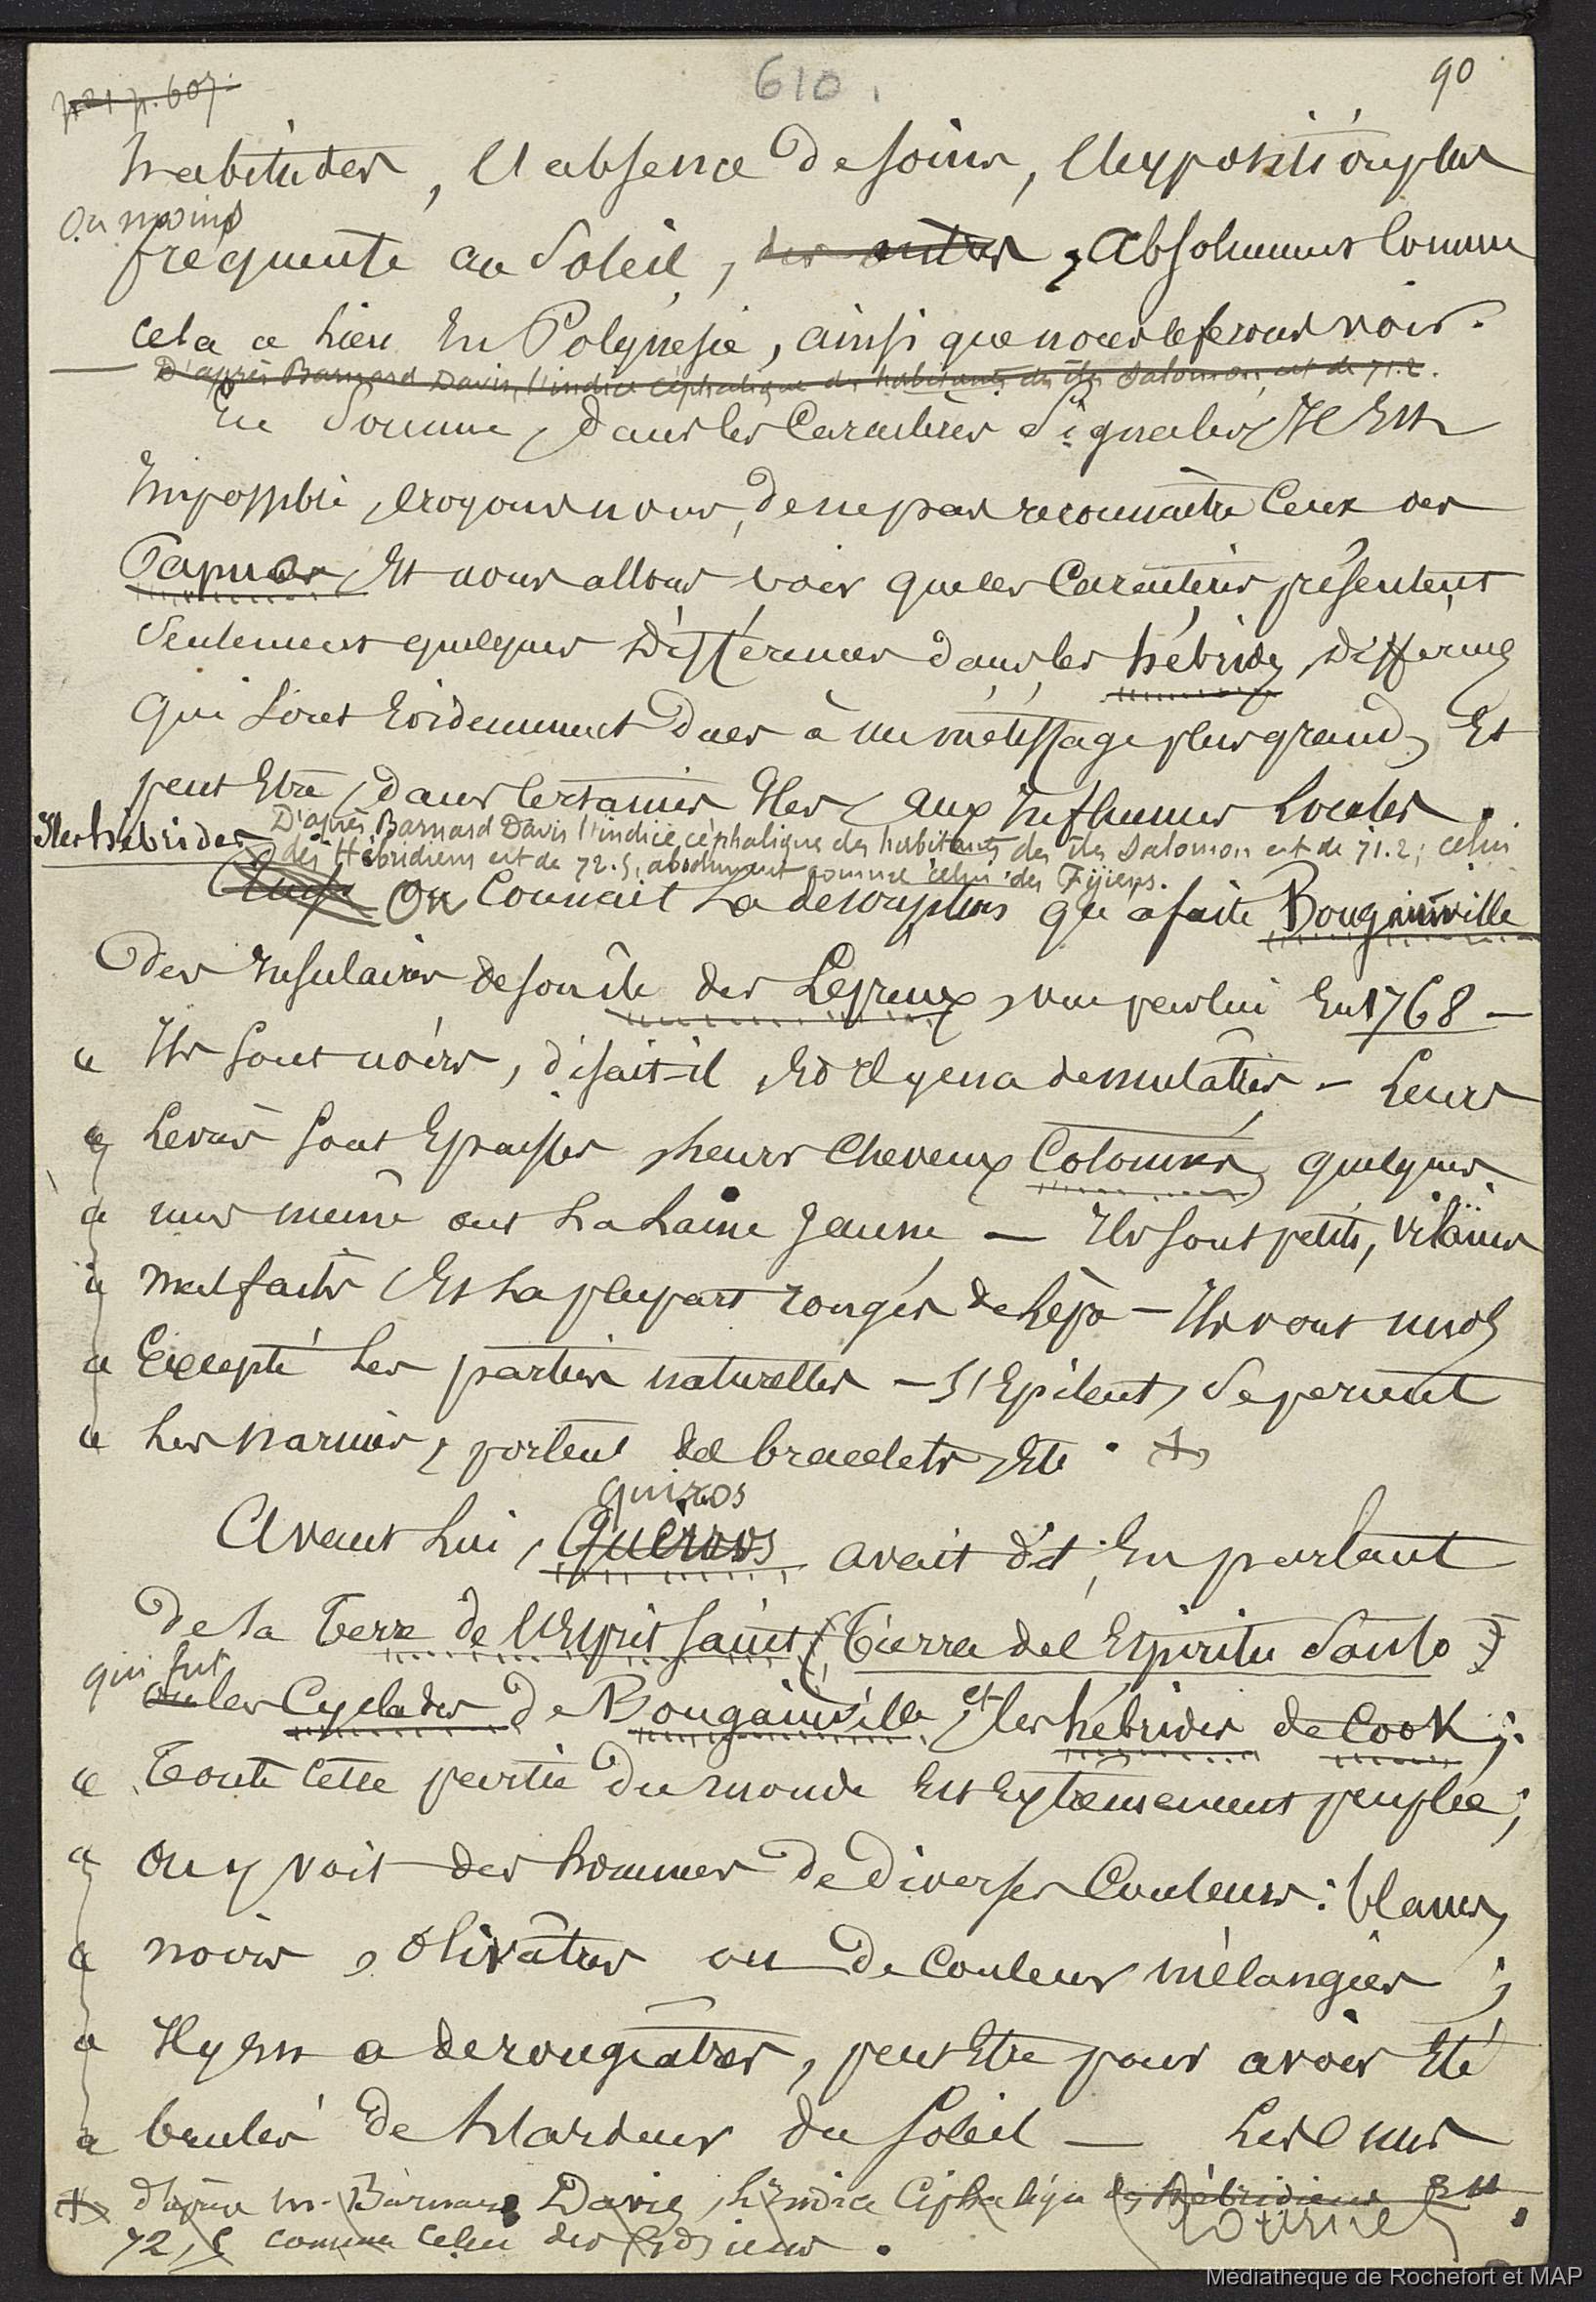 610.
90
p. 607.
habitudes, l'absence de soins, l'exposition plus
ou moins
fréquente au Soleil, des autres, absolument comme
cela a lieu en Polynésie, ainsi que nous le ferons voir.
D'après Barnard Davis, l'indice céphalique des habitants des îles Salomon, est de 71.2.
En Somme, dans les Caractères Signalés, Il Est
Impossible, croyons nous, de ne pas reconnaître Ceux des
Papuas, Et nous allons voir que les Caractères présentent
Seulement quelques Différences dans les hébrides, différences
qui Sont Evidemment Dues à un métissage plus grand, Et
peut Etre, dans Certaines Iles, aux Influences Locales.
Iles hébrides
D'après Barnard Davis l'indice céphalique des habitants des îles Salomon est de 71.2; celui
des Hébridiens est de 72.5, absolument comme celui des Fijiens.
On Connait La description qu'a faite Bougainville
Des Insulaires de son île des Lépreux, vue par lui En 1768 –
« Ils Sont noirs, disait-il, Et Il y en a de mulâtres – Leurs
« Levres Sont Epaisses, Leurs Cheveux Cotonnés, quelques
« uns même ont La Laine Jaune – Ils Sont petits, vilains
« mal faits, Et La plupart rongés de Lèpre – Ils vont nuds
« Excepté Les parties naturelles – S'Epilent, Se percent
« Les narines, portent des bracelets, Etc. +
Quiros
Avant Lui, Queiros avait dit, En parlant
De La Terre de l'Esprit Saint (Tierra del Espiritu Santo)
qui fut
ou les Cyclades de Bougainville, et les hébrides de Cook;
« Toute Cette partie Du monde Est Extrêmement peuplée;
« On y voit des hommes De Diverses Couleurs: blancs,
« noirs, Olivâtres ou De Couleurs mélangées;
« Il y En a de rougeâtres, peut Etre pour avoir Eté
« brulés De L'Ardeur du Soleil – Les Uns
+ d'après M. Barnard Davis, L'Indice Céphalique des Hébridiens Est
72,5 comme Celui des Fidjiens.
tournez
Médiathèque de Rochefort et MAP